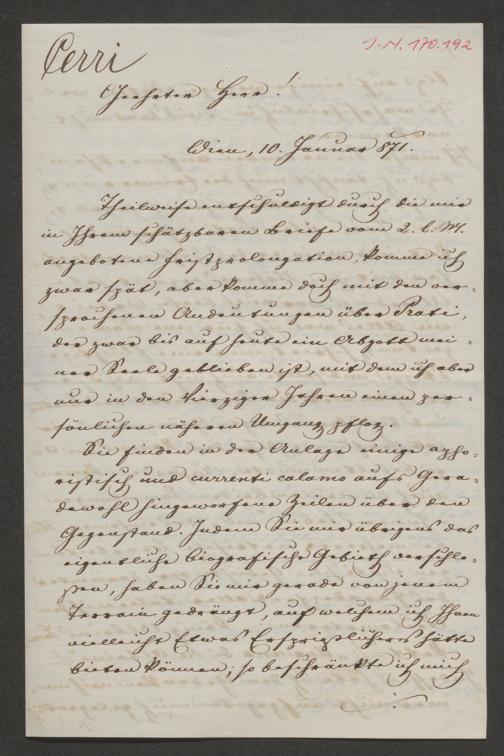 Cerri
J. N. 170.192
Geehrter Herr!
Wien, 10. Januar 871.
Theilweise entschuldigt durch die mir
in Ihrem schätzbaren Briefe vom 2. l. M.
angebotene Fristprolongation, komme ich
zwar spät, aber komme doch mit den ver-
sprochenen Andeutungen über Prati,
der zwar bis auf heute ein Abgott mei-
ner Seele geblieben ist, mit dem ich aber
nur in den Vierziger Jahren einen per-
sönlichen näheren Umgang pflog.
Sie finden in der Anlage einige apho-
ristisch und currenti calamo aufs Gera-
dewohl hingeworfene Zeilen über den
Gegenstand. Indem Sie mir übrigens das
eigentliche biografische Gebieth verschlo-
ßen, haben Sie mir gerade von jenem
Terrain gedrängt, auf welchem ich Ihnen
vielleicht Etwas Ersprießlicheres hätte
bieten können; so beschränkte ich mich